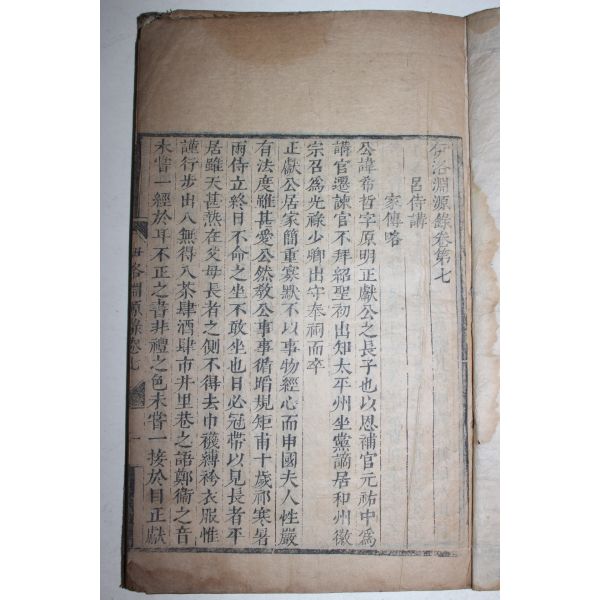 伊洛淵源錄卷第七
呂侍講
家傳略
公諱希哲字原明正獻公之長子也以恩補官元祐中爲
講官遷諫官不拜紹聖初出知太平州坐黨謫居和州徽
宗召爲光祿少卿出守奉祠而卒
正獻公居家簡重寡默不以事物經心而申國夫人性嚴
有法度雖甚愛公然教公事事循蹈規矩甫十歲祁寒暑
雨侍立終日不命之坐不敢坐也日必冠帶以見長者平
居雖天甚熱在父母長者之側不得去巾襪縛袴衣服惟
謹行步出入無得入茶肆酒肆市井里巷之語鄭衛之音
未嘗一經於耳不正之書非禮之色未嘗一接於目正獻
伊洛淵源錄卷七
一